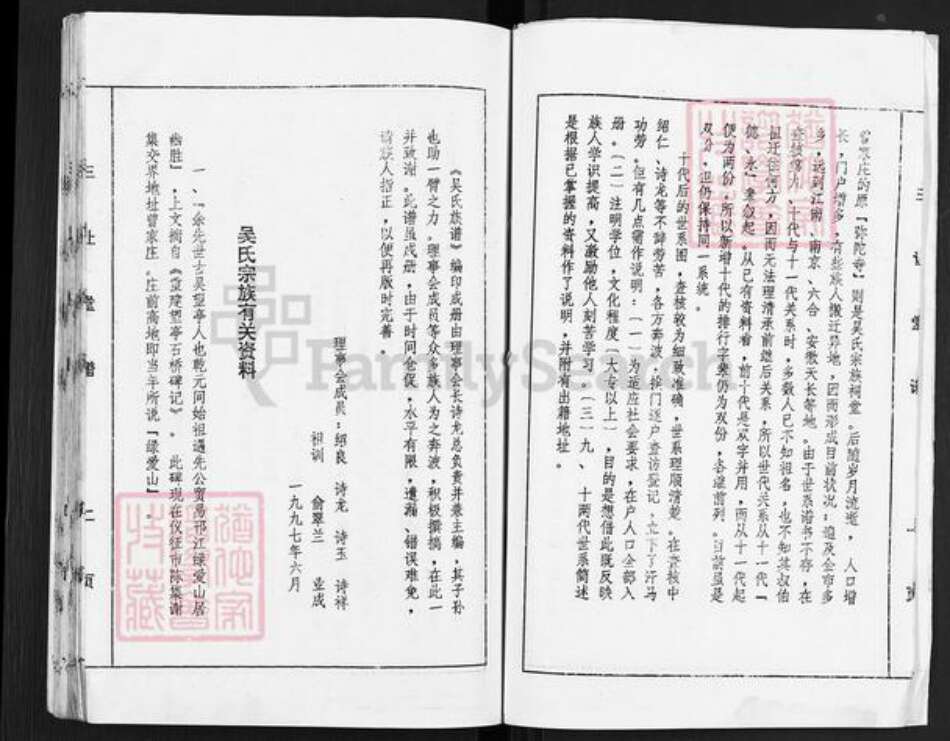 曾家庄的原「弥陀寺」则是吴氏宗族祠堂。后随岁月流逝，人口增
长，门户增多，有些族人搬迁异地，因而形成目前状况：遍及全市多
乡，远到江浦、南京、六合、安徽天长等地。由于世系谱书不存，在
查核常九、十代与十一代关系时，多数人已不知祖名，也不知其叔伯
祖迁往何方，因而无法理清承前继后关系，所以世代关系从十一代「
懿、永」来叙起，从已有资料看，前十代是双字并用，而从十一代起
便为两份，所以新增十代的排行字辈仍为双份，各继前列。目前虽是
双份，还仍保持同一系统。
十代后的世系图，查核较为细致准确，世系理顺清楚。在查核中
绍仁、诗龙等不辞劳苦，各方奔波，挨门逐户查访登记，立下了汗马
功劳。但有几点需作说明：（一）为适应社会要求，在户人口全部入
册。（二）注明学位，文化程度（大专以上），目的是想借此既反映
族人学识提高，又激励他人刻苦学习。（三）九、十两代世系简述
是根据已掌握的资料作了说明，并附有出籍地址。
《吴氏族谱》编印成册由理事会长诗龙总负责并兼主编，其子孙
也助一臂之力。理事会成员等众多族人为之奔波，积极撰搞，在此一
并致谢。此谱虽成册，由于时间仓促，水平有限，遗漏、错误难免，
请族人指正，以便再版时完善。
理事会成员：绍良 诗龙 诗玉 诗祥
祖训 俞翠兰 业成
一九九七年六月
吴氏宗族有关资料
一、「余先世古吴望亭人也乾元间始祖遇先公贸易邗江绿爱山居
幽胜」，上文摘自《重建望亭石桥碑记》。此碑现在仪征市陈集谢
集交界地址曾家庄。庄前高地即当年所说「绿爱山」。
三让堂谱
二页
三让堂谱
一页
FamilySearch